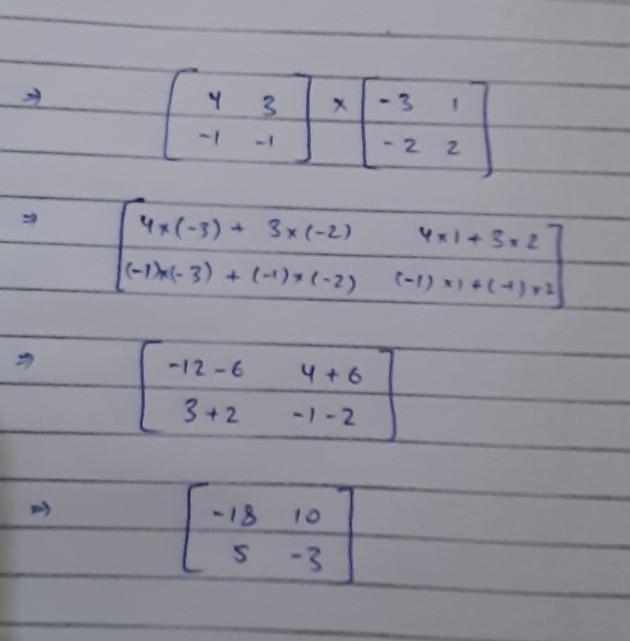 ⇒ [ 4 3 ] × [ -3 1 ]
[ -1 -1 ] [ -2 2 ]
⇒ [ 4×(-3) + 3×(-2) 4×1 + 3×2 ]
[ (-1)×(-3) + (-1)×(-2) (-1)×1 + (-1)×2 ]
⇒ [ -12-6 4+6 ]
[ 3+2 -1-2 ]
⇒ [ -18 10 ]
[ 5 -3 ]